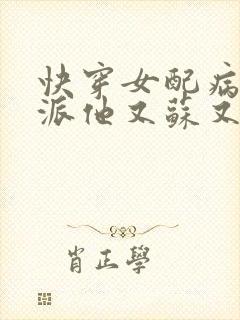 快穿女配病
派他又蘇又
肖正學